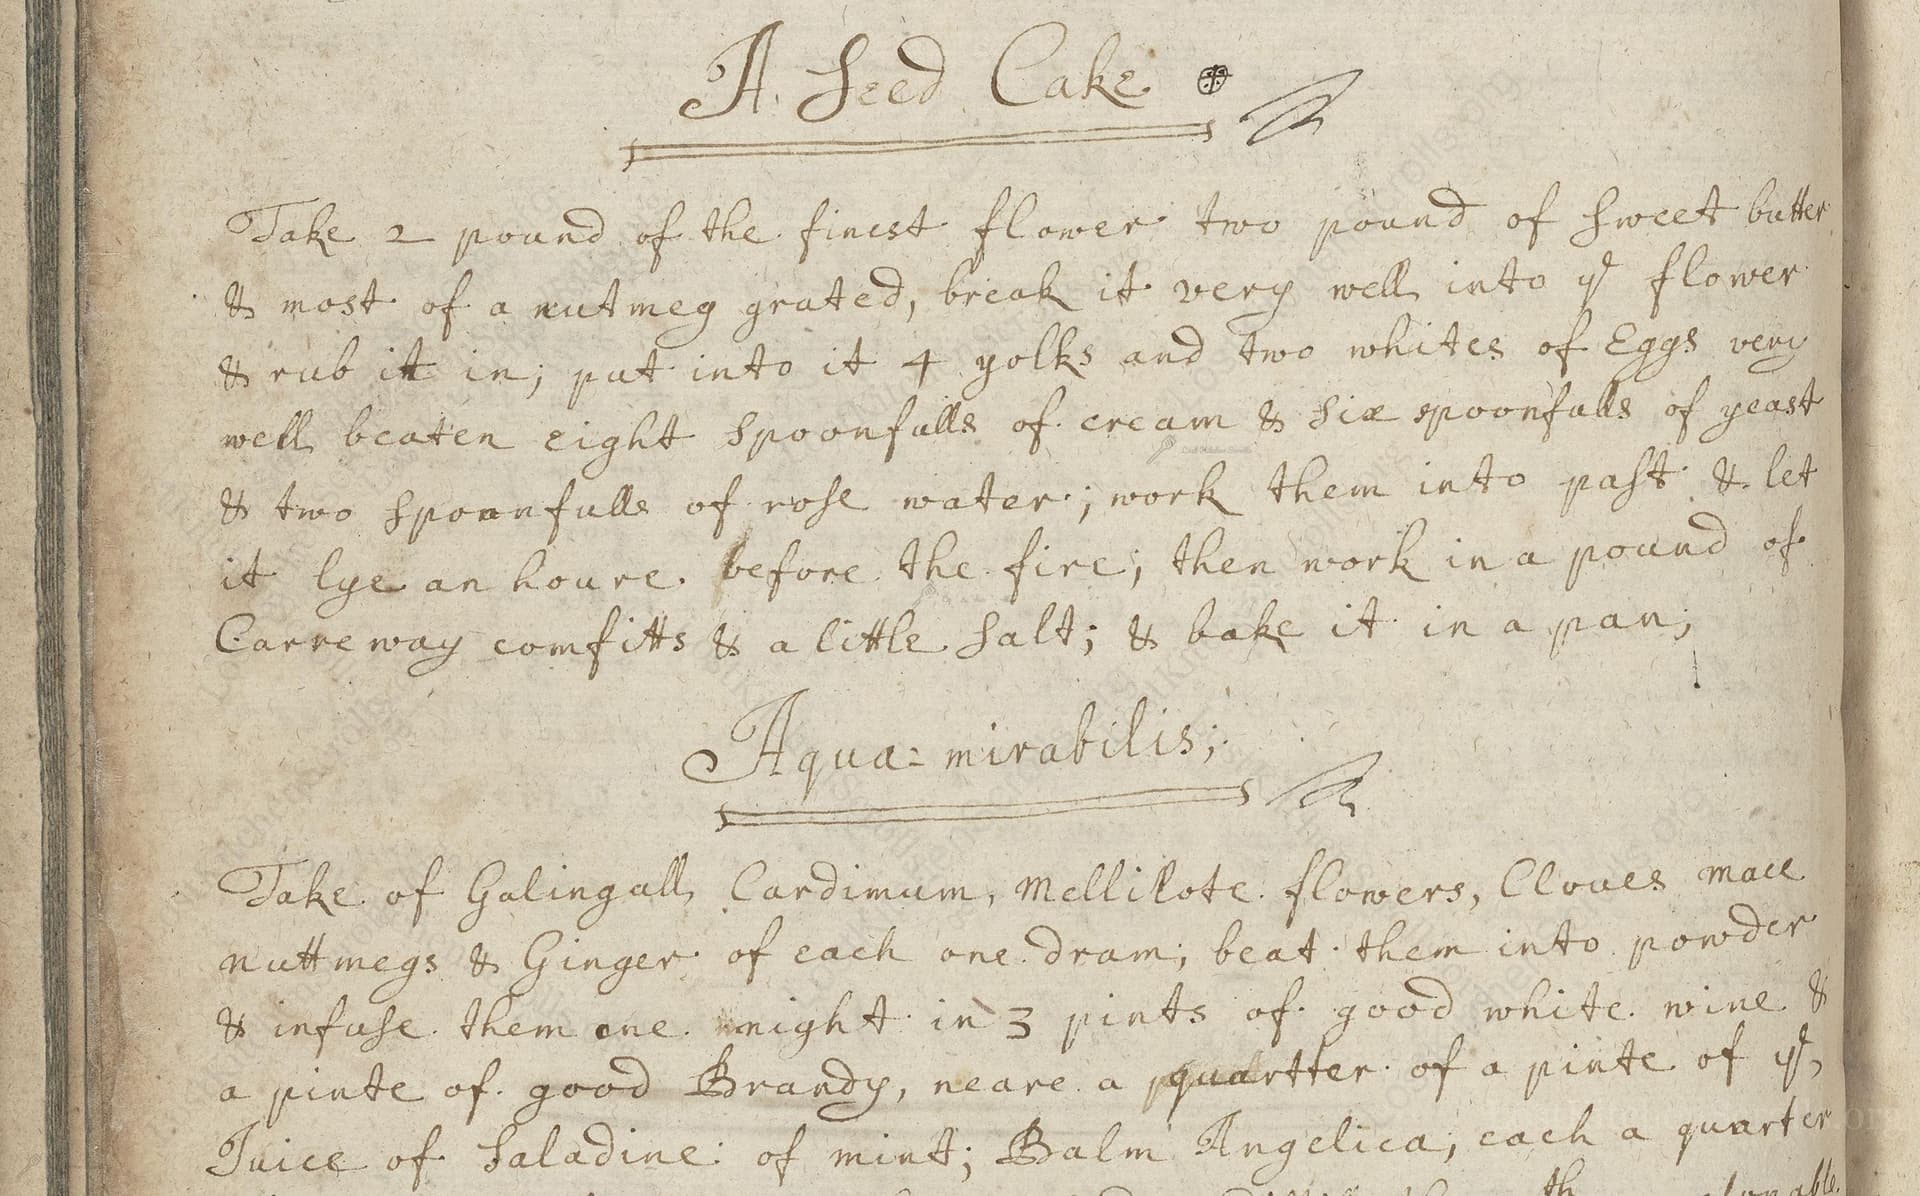 A Seed Cake
Take 2 pound of the finest flower two pound of sweet butter
& most of a nutmeg grated, break it very well into ye flower
& rub it in; put into it 4 yolks and two whites of Eggs very
well beaten eight spoonfulls of cream & six spoonfulls of yeast
& two spoonfulls of rose water; work them into past & let
it lye an houre before the fire; then work in a pound of
Carreway comfitts & a little salt; & bake it in a pan;
Aqua-mirabilis;
Take of Galingall, Cardimum, Mellilote flowers, Cloves mace
nuttmegs & Ginger of each one dram; beat them into powder
& infuse them one night in 3 pints of good white wine &
a pinte of good Brandy, neare a quartter of a pinte of ye,
Juice of Saladine: of mint; Balm Angelica, each a quarter